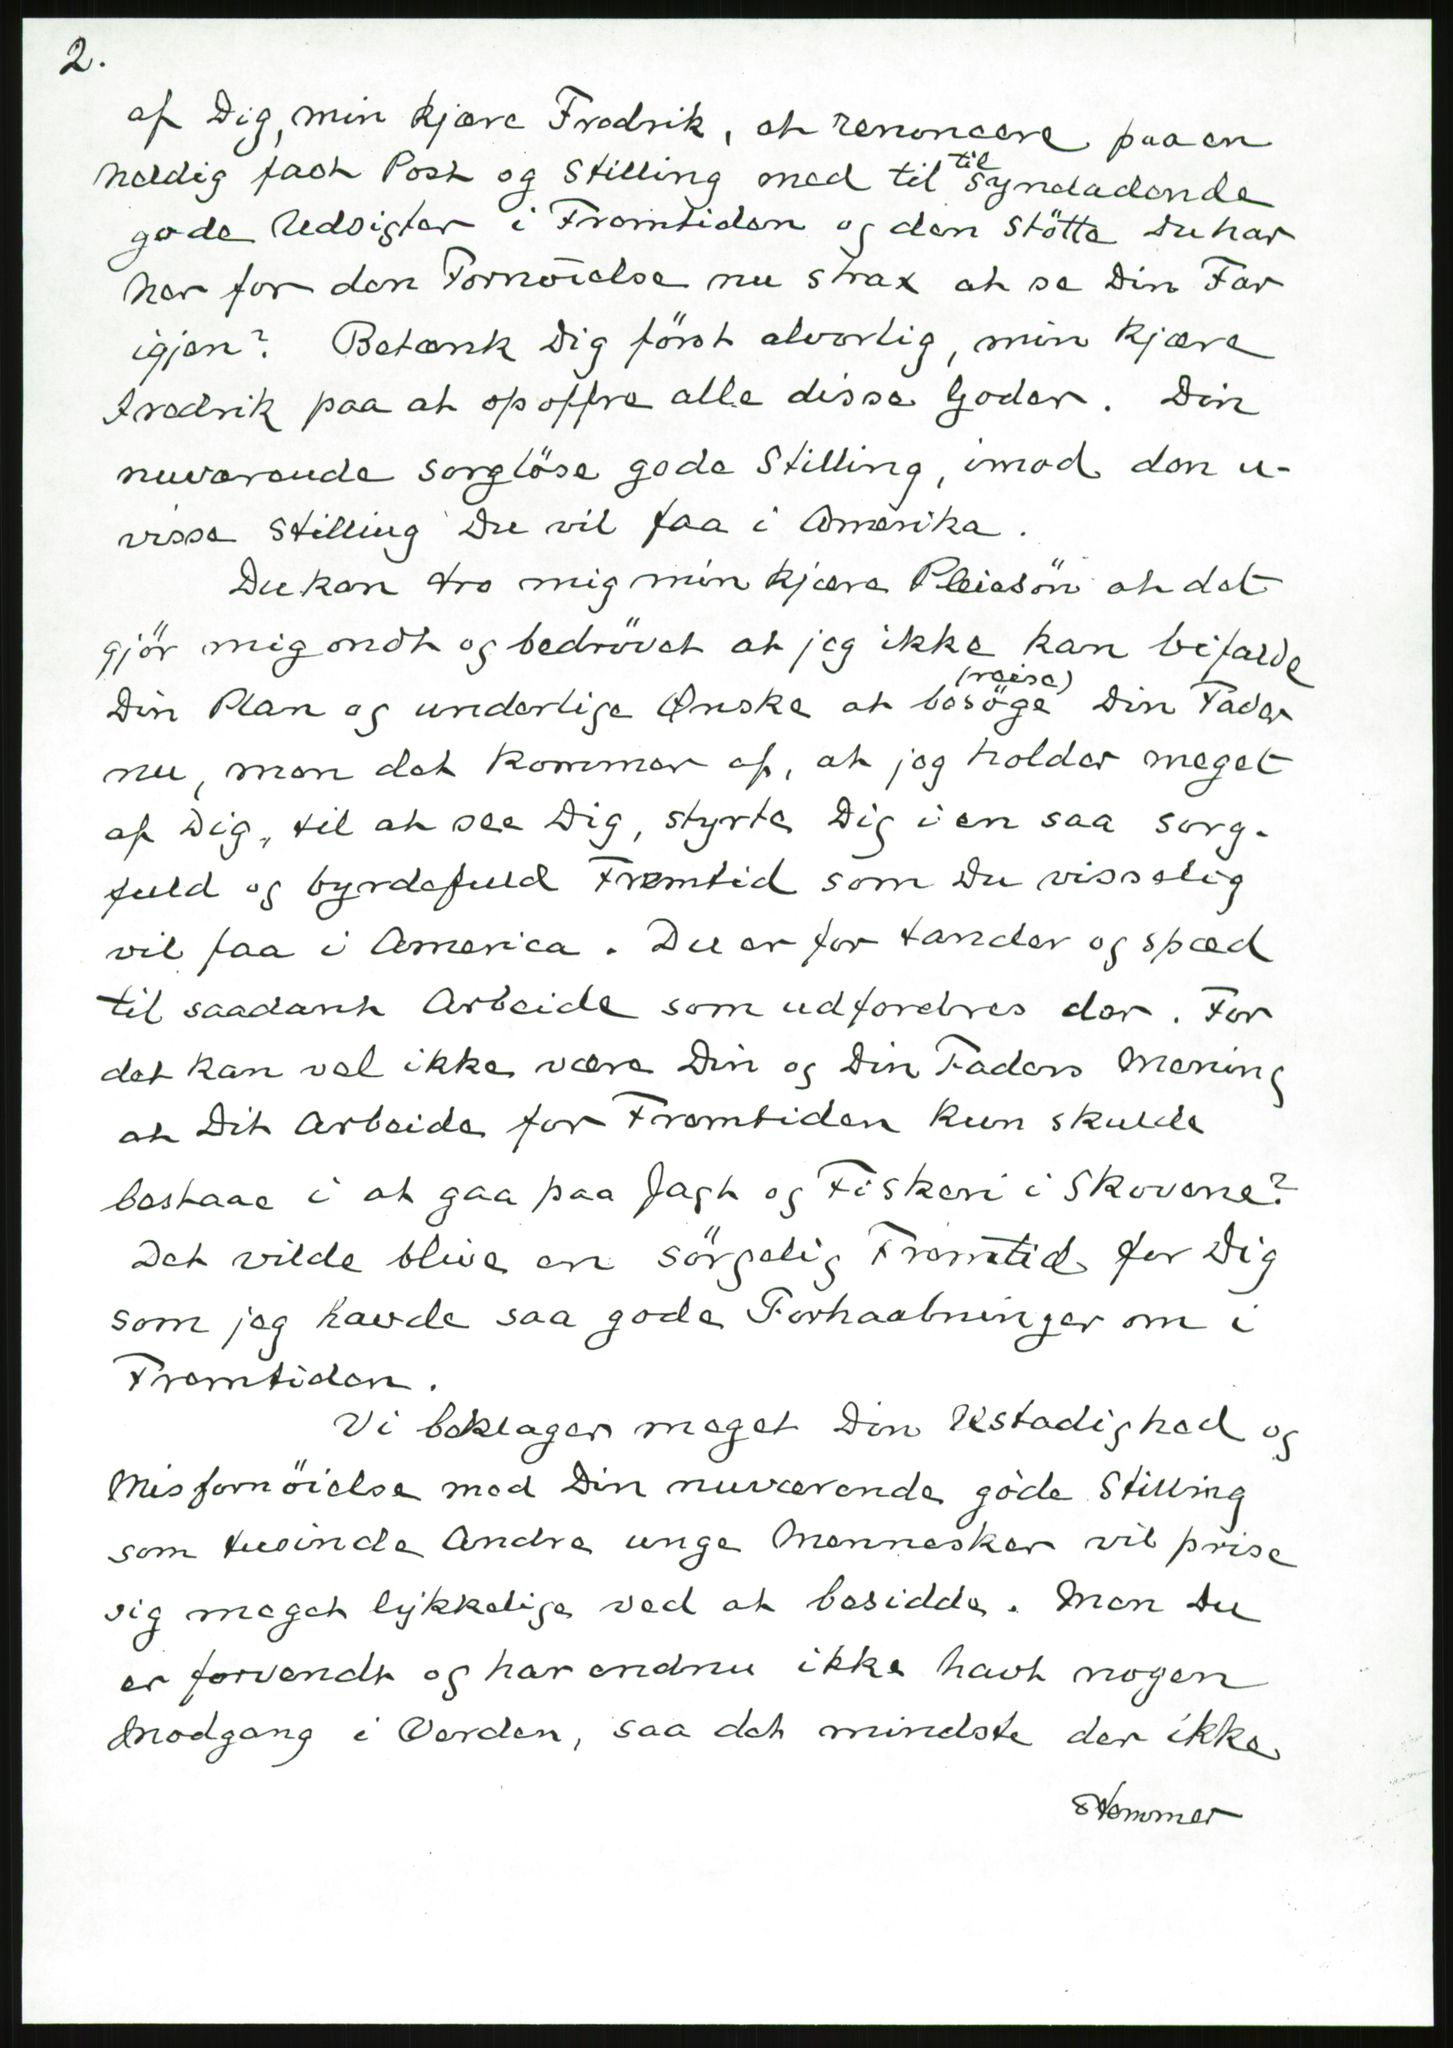 2.
af Dig, min kjære Fredrik, at renoncere paa en
heldig fast Post og Stilling med til til syndadende
gode Udsigter i Fremtiden og den Stötte Du har
her for den Fornöielse nu strax at se Din Far
igjen? Betænk Dig först alvorlig, min kjære
Fredrik paa at opoffre alle disse Goder. Din
nuværende sorglöse gode Stilling, imod den u-
visse Stilling Du vil faa i Amerika.
Du kan tro mig min kjære Pleiesön at det
gjör mig ondt og bedrövet at jeg ikke kan bifalde
Din Plan og underlige Ønske at besöge (reise) Din Fader
nu, men det kommer af, at jeg holder meget
af Dig, til at see Dig, styrte Dig i en saa sorg-
fuld og byrdefuld Fremtid som Du visselig
vil faa i America. Du er for tander og spæd
til saadant Arbeide som udfordres der. For
det kan vel ikke være Din og Din Faders Mening
at Dit Arbeide for Fremtiden kun skulde
bestaae i at gaa paa Jagt og Fiskeri i Skovene?
Det vilde blive en sörgelig Fremtid for Dig
som jeg havde saa gode Forhaabninger om i
Fremtiden.
Vi beklager meget Din Ustadighed og
Misfornöielse med Din nuværende gode Stilling
som tusinde Andre unge Mennesker vil prise
sig meget lykkelige ved at besidde. Men Du
er forvendt og har endnu ikke havt nogen
Modgang i Verden, saa det mindste der ikke
stemmer